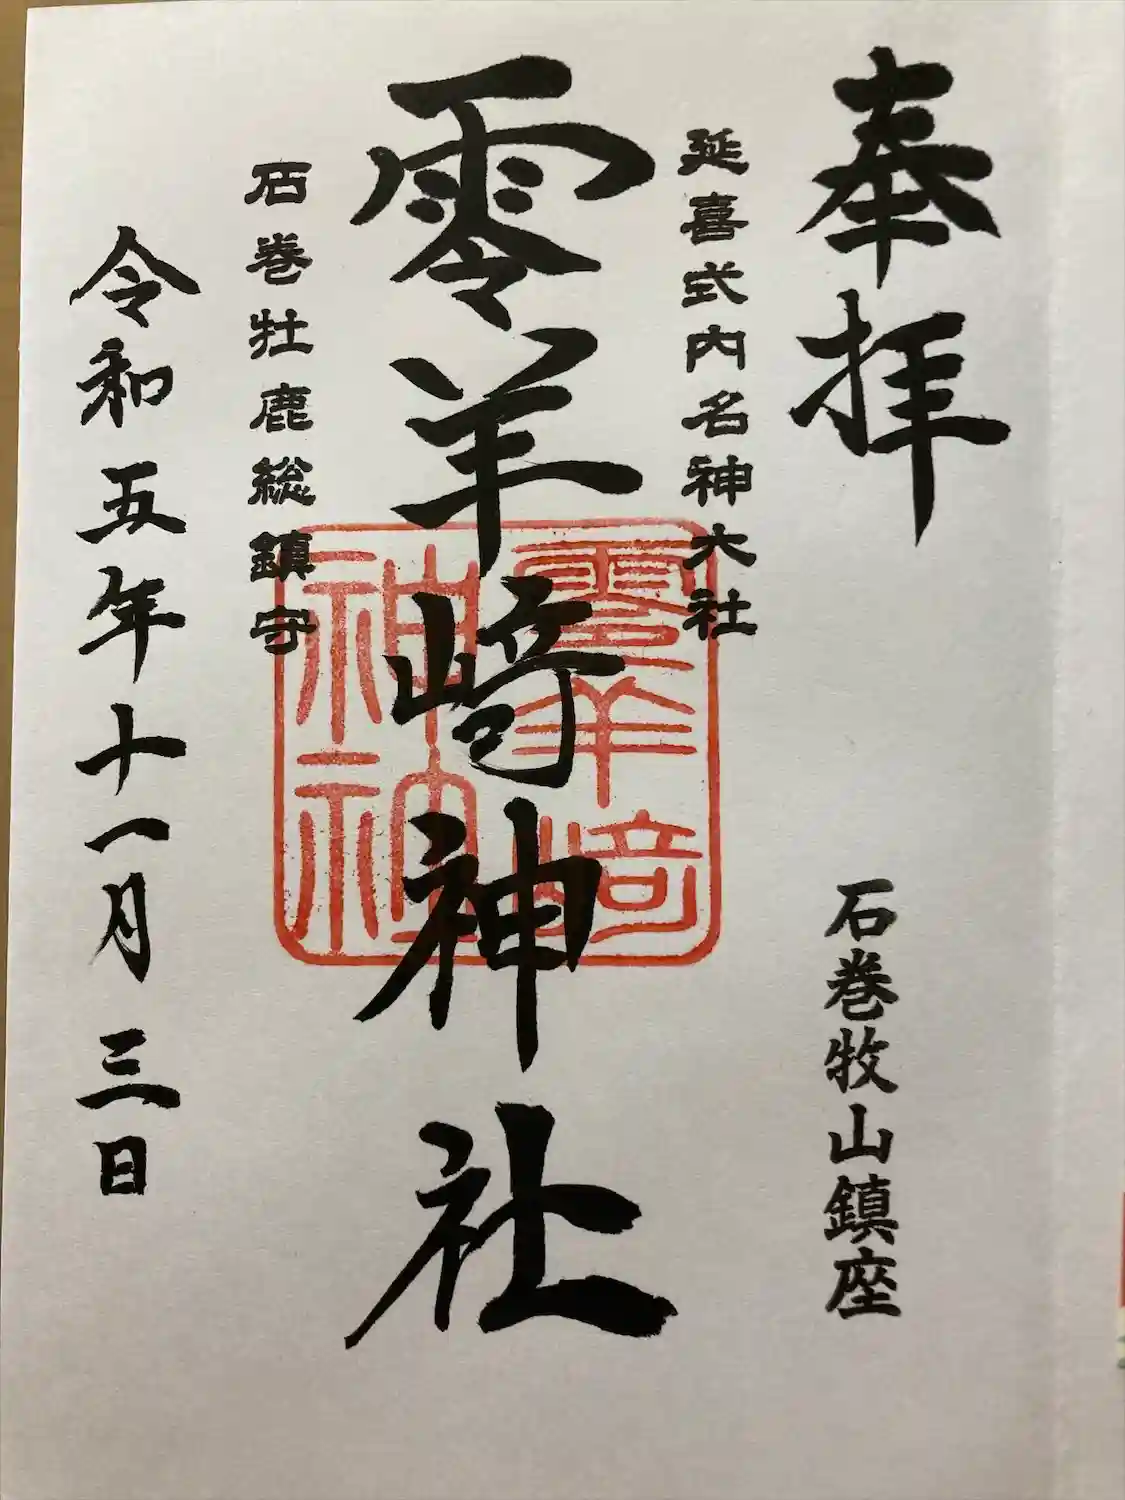 奉拝
石巻牧山鎮座
延喜式内名神大社
零羊崎神社
零羊崎
神社
石巻牡鹿総鎮守
令和五年十一月三日